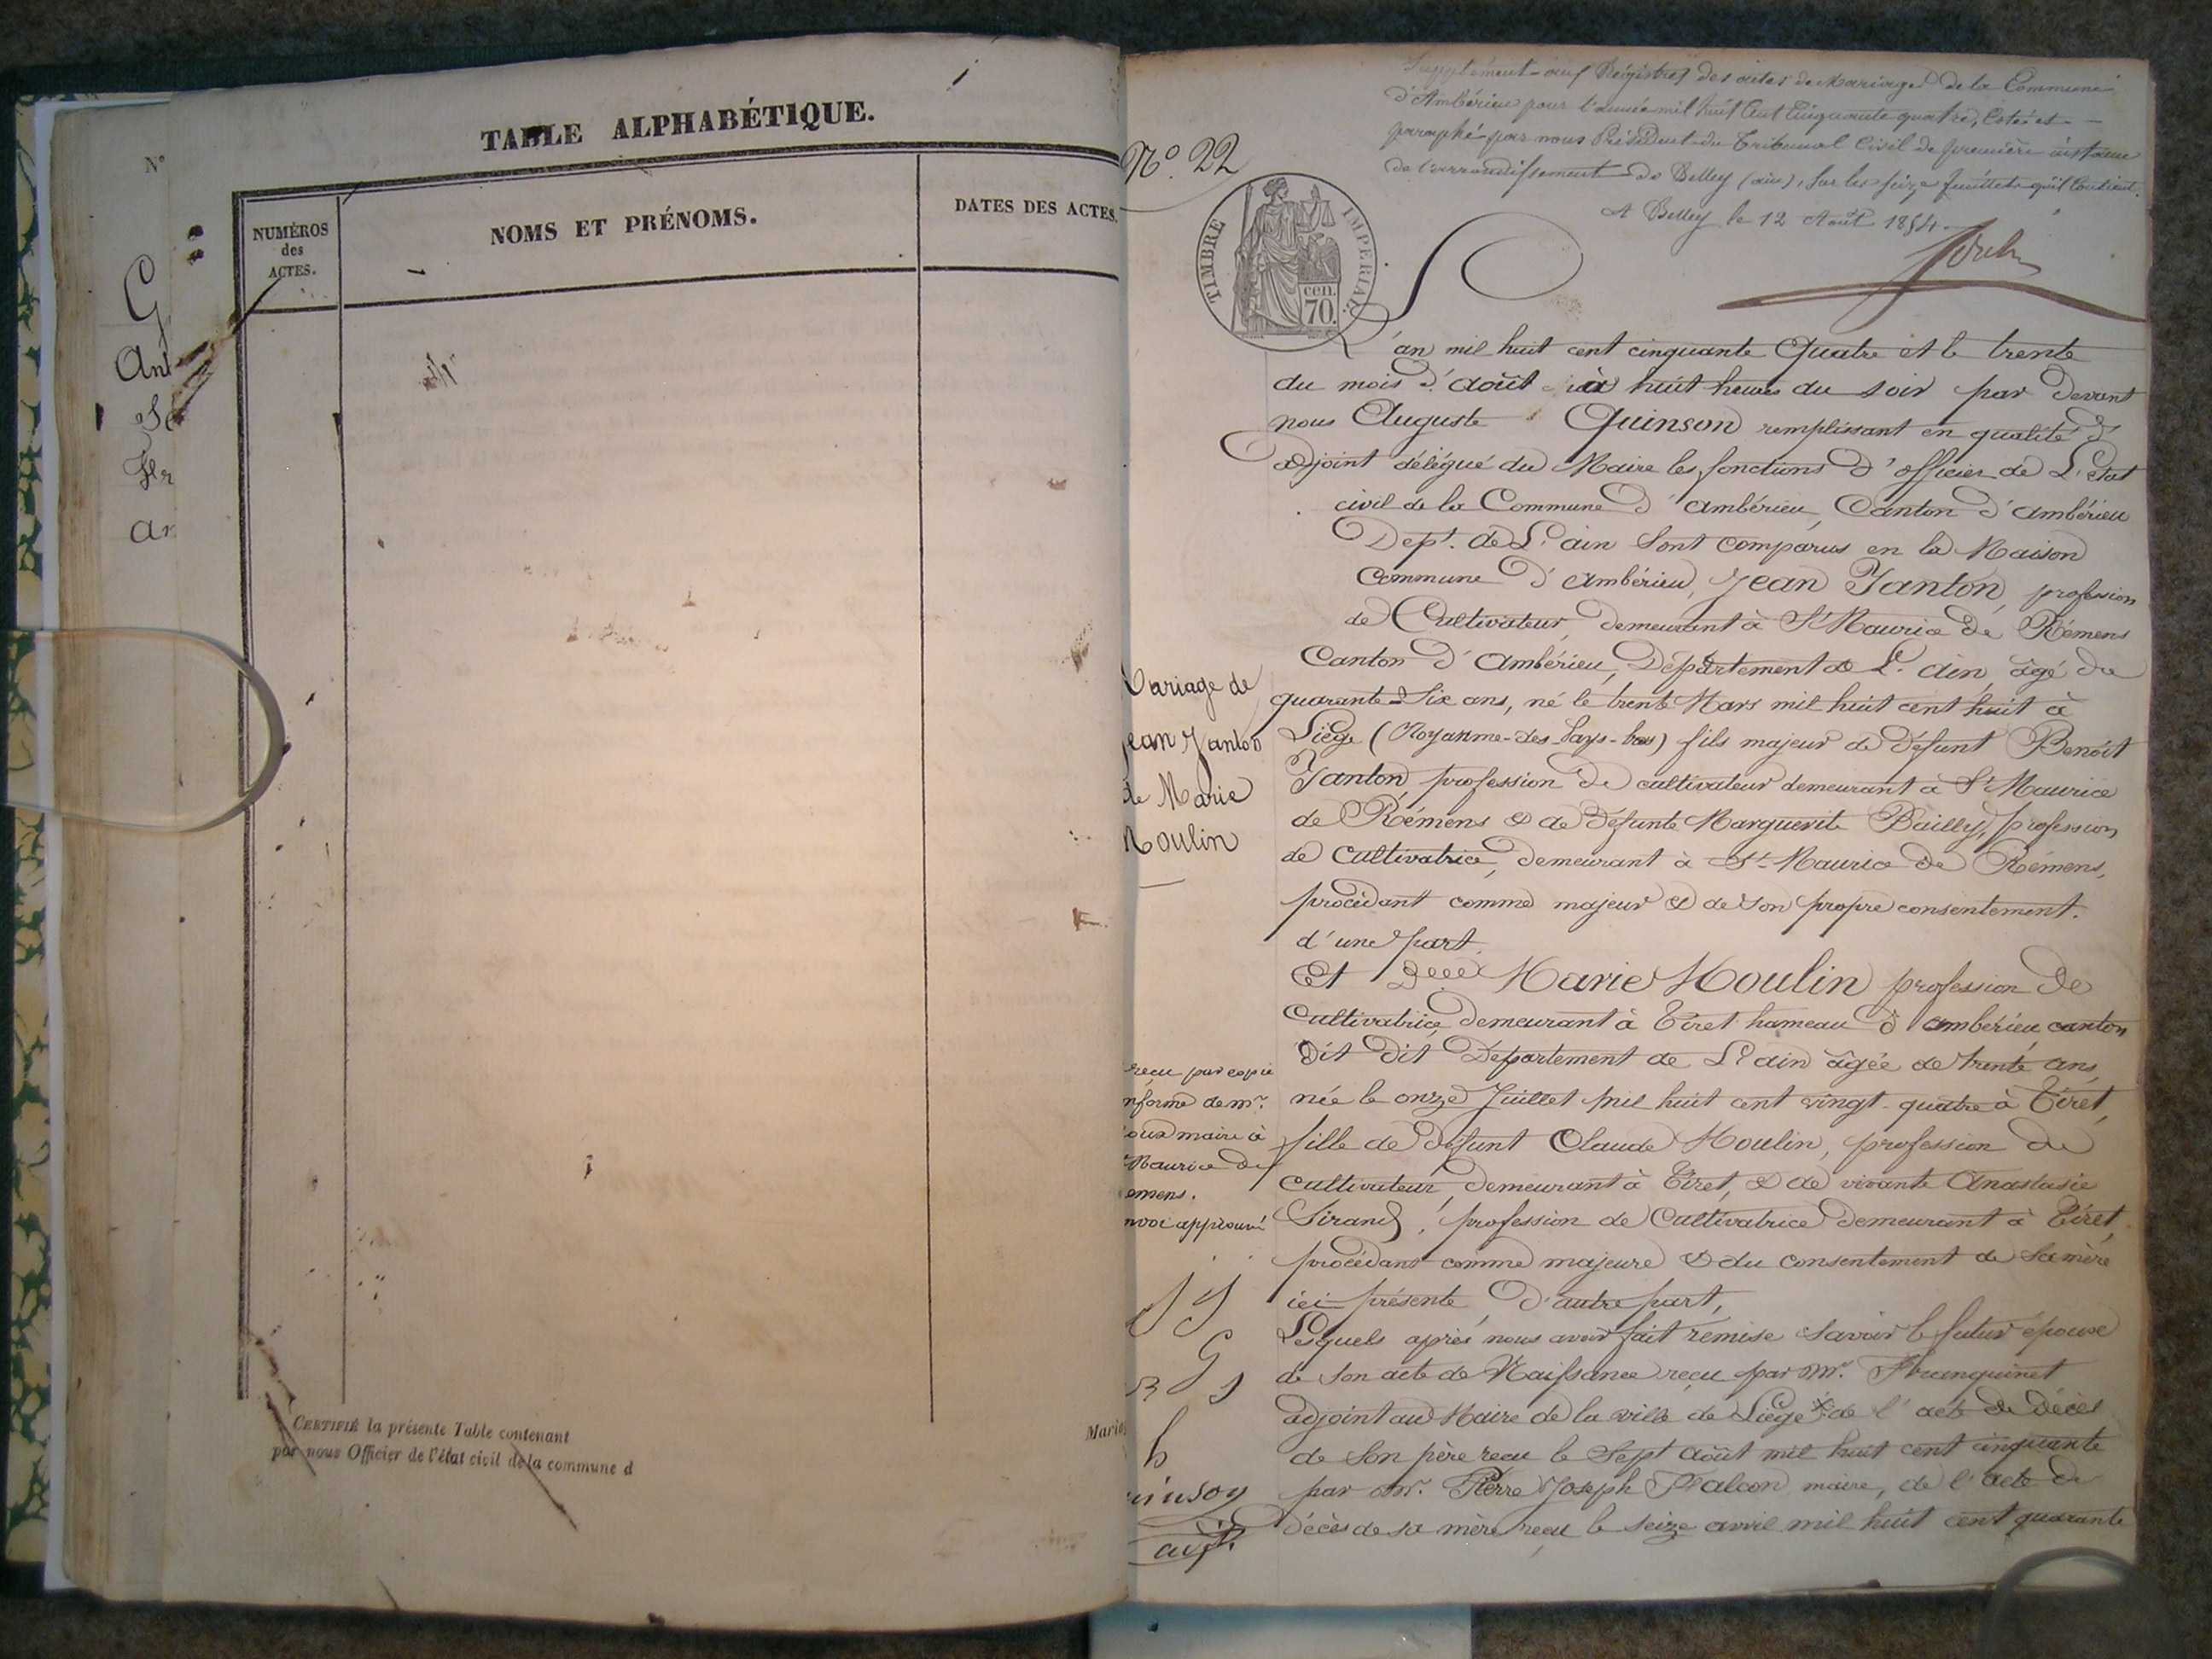 TABLE ALPHABÉTIQUE.
N°
NUMÉROS
des
ACTES.
NOMS ET PRÉNOMS.
DATES DES ACTES.
G
An
Ar
CERTIFIÉ la présente Table contenant
par nous Officier de l'état civil de la commune d
Supplément aux Régistres des actes de Mariages de la Commune
d'Ambérieu pour l'année mil huit cent cinquante quatre, Coté et
paraphé par nous Président du Tribunal Civil de première instance
de l'arrondissement de Belley (ain), sur les seize feuillets qu'il Contient.
A Belley le 12 Août 1854.
N°. 22
TIMBRE IMPERIAL
cen.
70.
L'an mil huit cent cinquante Quatre et le trente
du mois d'août à huit heures du soir par devant
nous Auguste Quinson remplissant en qualité d'
adjoint délégué du Maire les fonctions d'officier de L'état
civil de la Commune d'ambérieu, Canton d'ambérieu
Dept. de L'ain Sont comparus en la Maison
Commune d'ambérieu, Jean Janton, profession
de Cultivateur, demeurant à St Maurice de Rémens
Canton d'Ambérieu, Département de L'ain, âgé de
quarante-Six ans, né le trente Mars mil huit cent huit à
Liège (Royaume-des-Pays-bas) fils majeur de défunt Benoit
Janton, profession de cultivateur demeurant à St Maurice
de Rémens & de défunte Marguerite Bailly, profession
de Cultivatrice, demeurant à St Maurice de Rémens,
procédant comme majeur & de son propre consentement.
d'une part.
Et Delle Marie Moulin profession de
Cultivatrice, demeurant à Tiret hameau d'ambérieu, canton
dit dit Département de L'ain âgée de trente ans,
née le onze Juillet mil huit cent vingt-quatre à Tiret,
fille de défunt Claude Moulin, profession de
Cultivateur, demeurant à Tiret, & de vivante Anastasie
Sirand, profession de Cultivatrice demeurant à Tiret,
procédant comme majeure & du consentement de Sa mère
ici présente d'autre part,
Lesquels après nous avoir fait remise Savoir le futur époux
de son acte de Naissance reçu par Mr.
adjoint au Maire de la ville de Liège * de l'acte de décès
de Son père reçu le Sept août mil huit cent cinquante
par Mr. Pierre Joseph Falcon maire, de l'acte de
décès de sa mère reçu le Seize avril mil huit cent quarante
Mariage de
Jean Janton
de Marie
Moulin
reçu par copie
nforme de mr.
maire à
Maurice de
emens.
nvoi approuvé
J J
G
B J
h
uinson
adj.